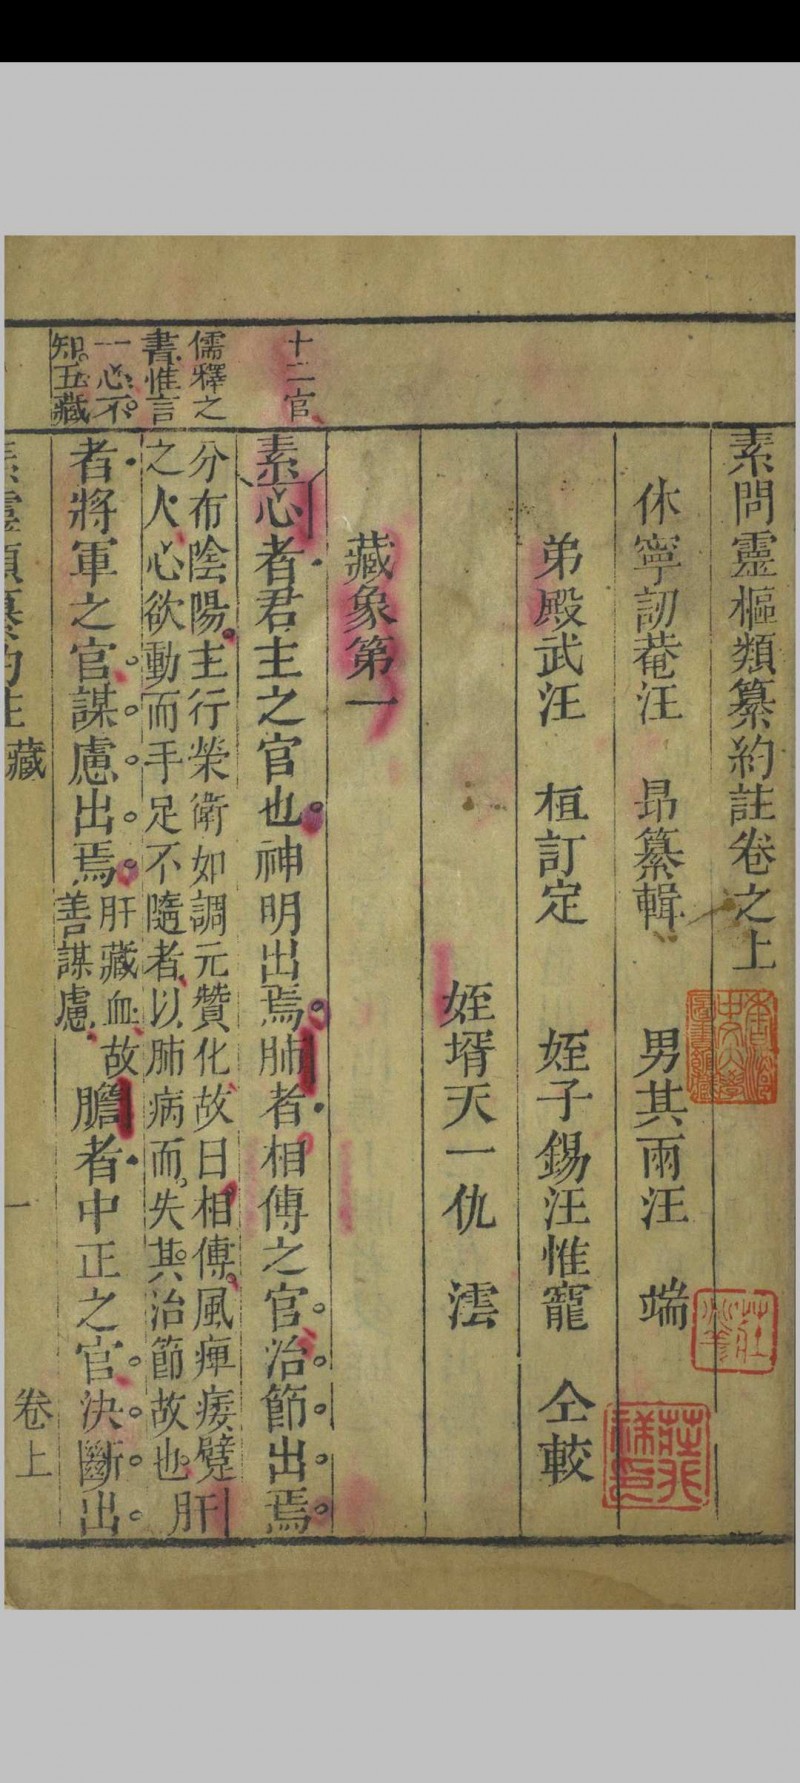 素問靈樞類纂約註卷之上
休寧訒菴汪　昂纂輯　男其兩汪　端
弟殿武汪　桓訂定　姪子錫汪惟寵　仝較
姪壻天一仇　澐
藏象第一
十二官
素心者君主之官也神明出焉肺者相傅之官治節出焉
儒釋之
書惟言
一心不
知五藏
分布陰陽主行榮衛如調元贊化故曰相傅風痺痿躄
之人心欲動而手足不隨者以肺病而失其治節故也
肝
者將軍之官謀慮出焉
肝藏血故
善謀慮
膽者中正之官決斷出
藏
一
卷上